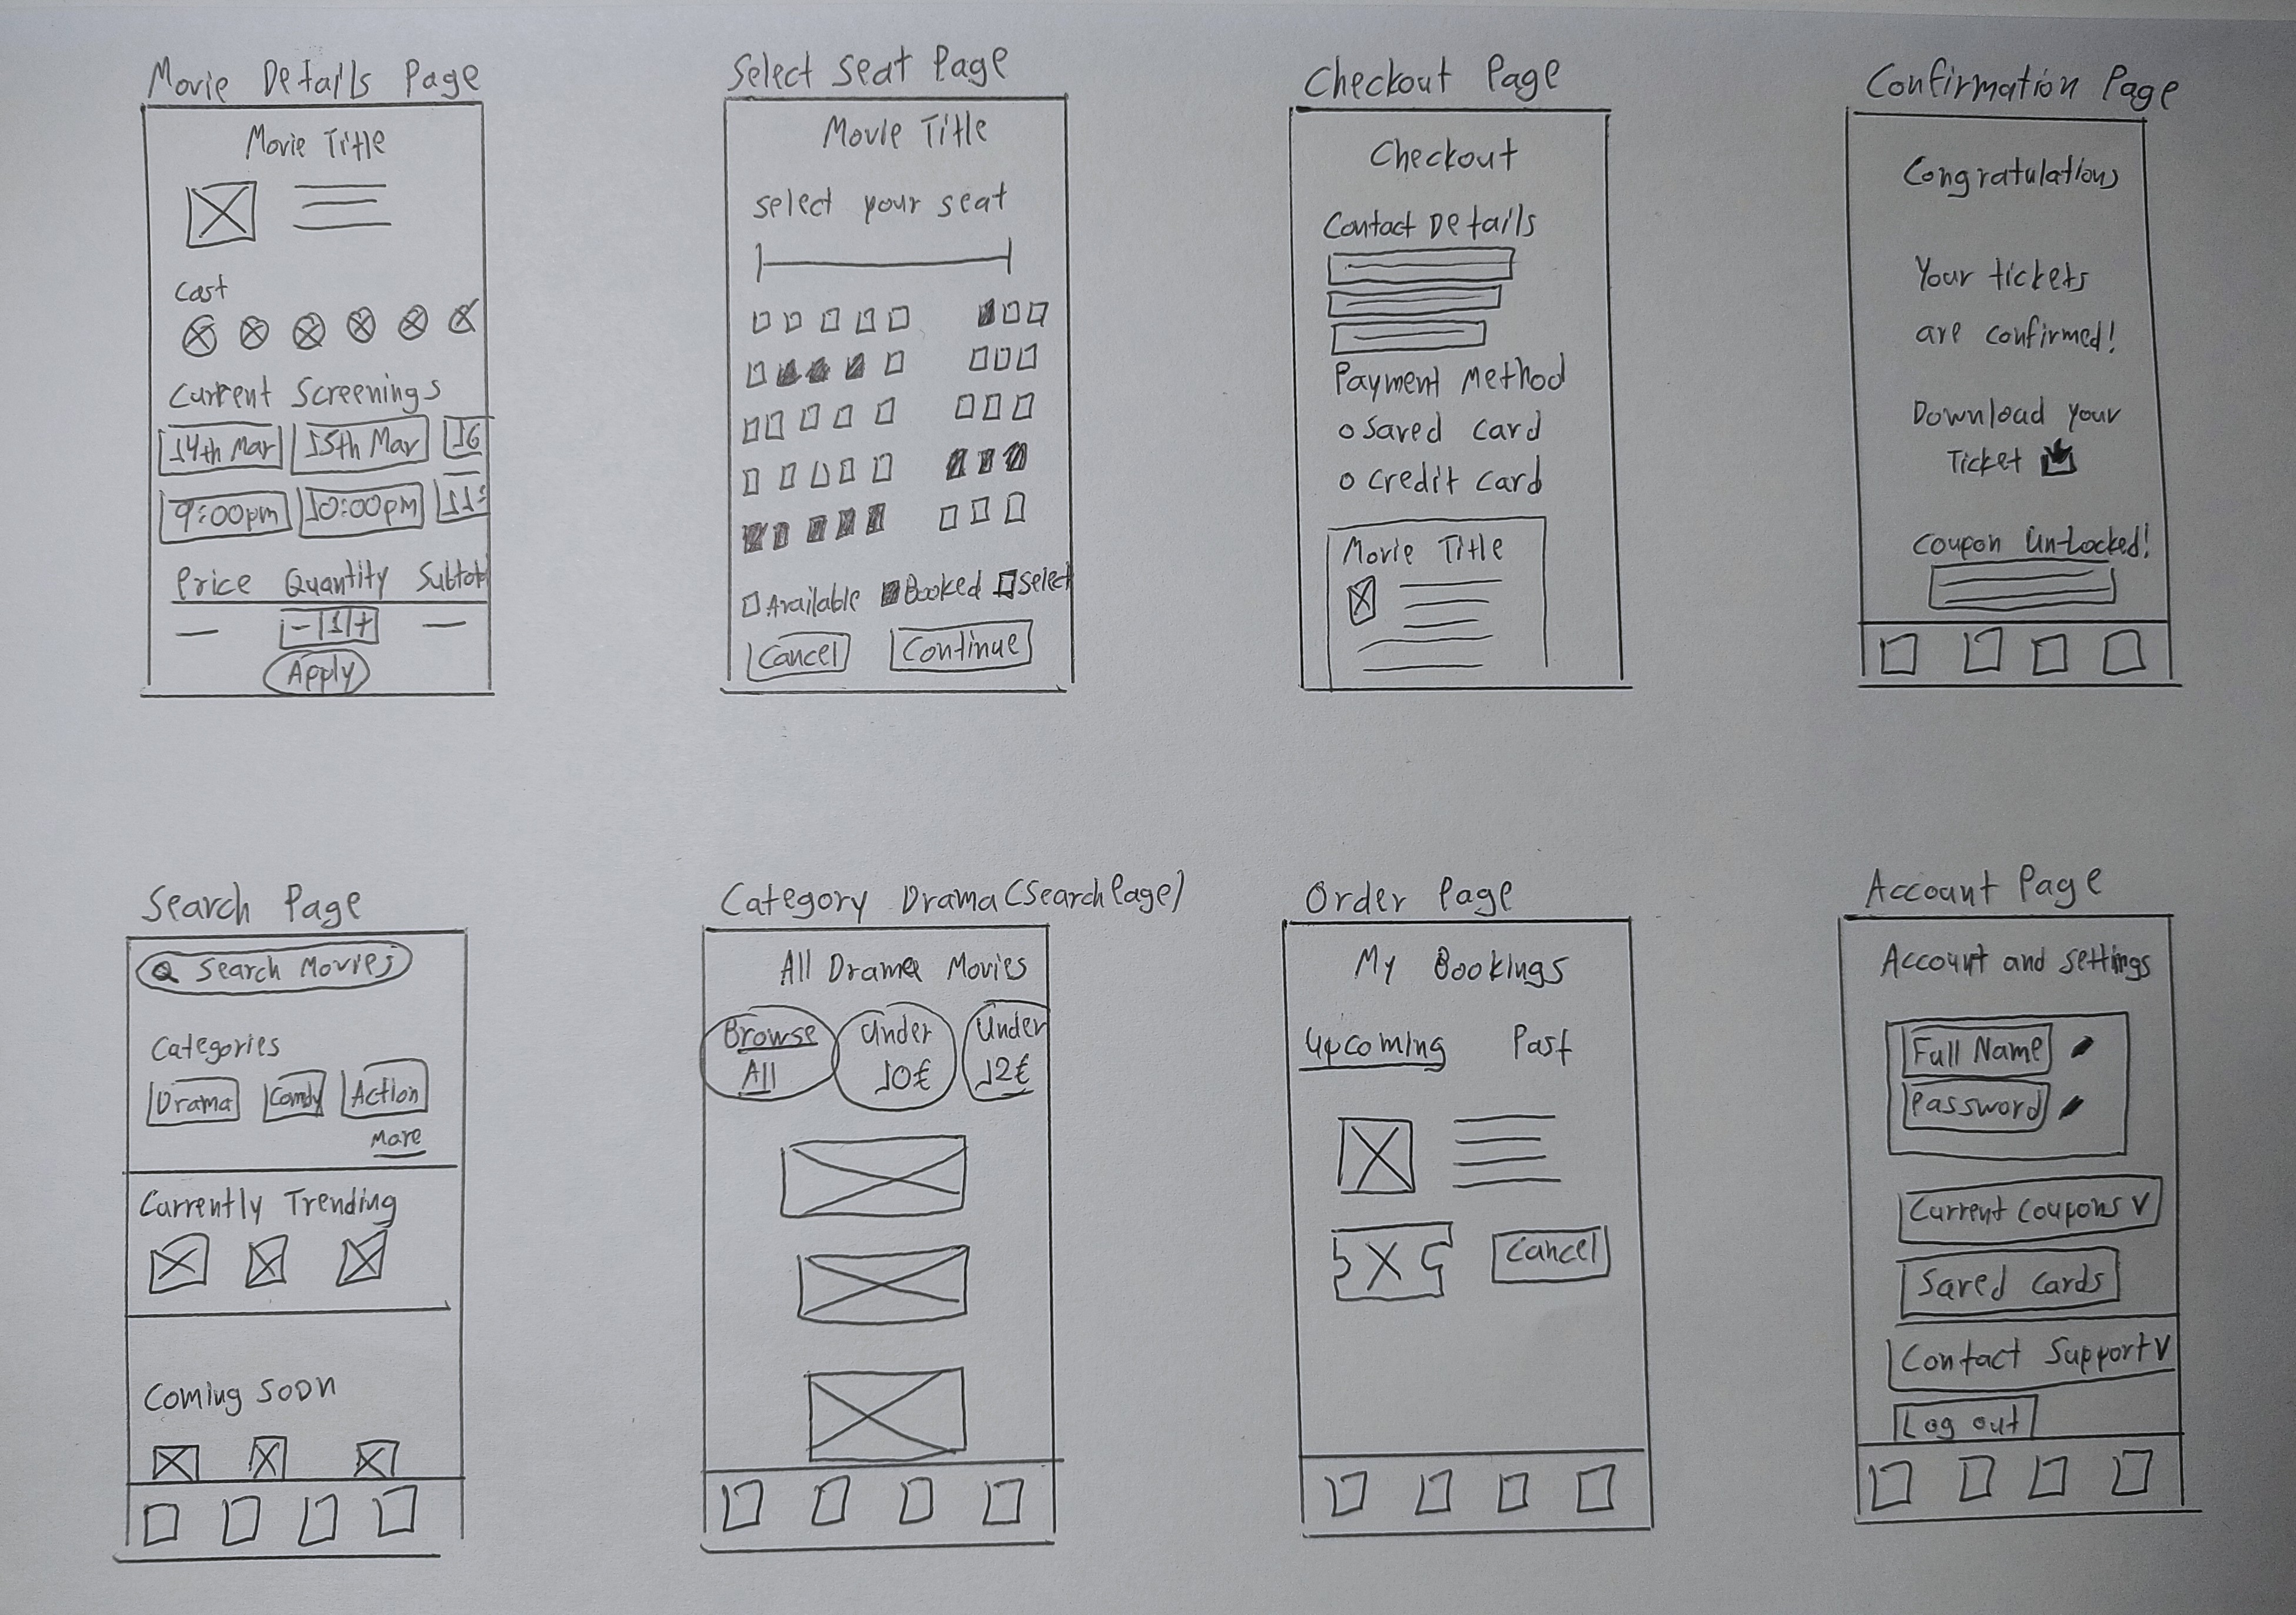 Movie Details Page
Movie Title
Cast
Current Screenings
14th Mar 15th Mar 16
9:00pm 10:00pm 11:
Price Quantity Subtot
- 1 +
Apply
Select Seat Page
Movie Title
select your seat
Available Booked Select
Cancel Continue
Checkout Page
Checkout
Contact Details
Payment Method
Saved card
credit card
Movie Title
Confirmation Page
Congratulations
Your tickets
are confirmed!
Download your
Ticket
Coupon Un-Locked!
Search Page
Search Movies
Categories
Drama Comdy Action
More
Currently Trending
Coming Soon
Category Drama (Search Page)
All Drama Movies
Browse Under Under
All 10€ 12€
Order Page
My Bookings
Upcoming Past
Cancel
Account Page
Account and settings
Full Name
Password
Current Coupons V
Saved Cards
Contact Support V
Log out